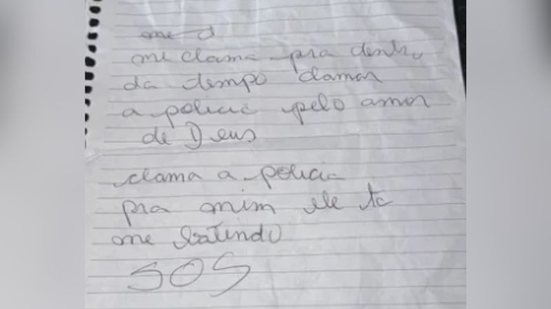 me d
me clama pra dentro
da tempo clamar
a policia pelo amor
de Deus
clama a policia
pra mim ele ta
me batendo
SOS